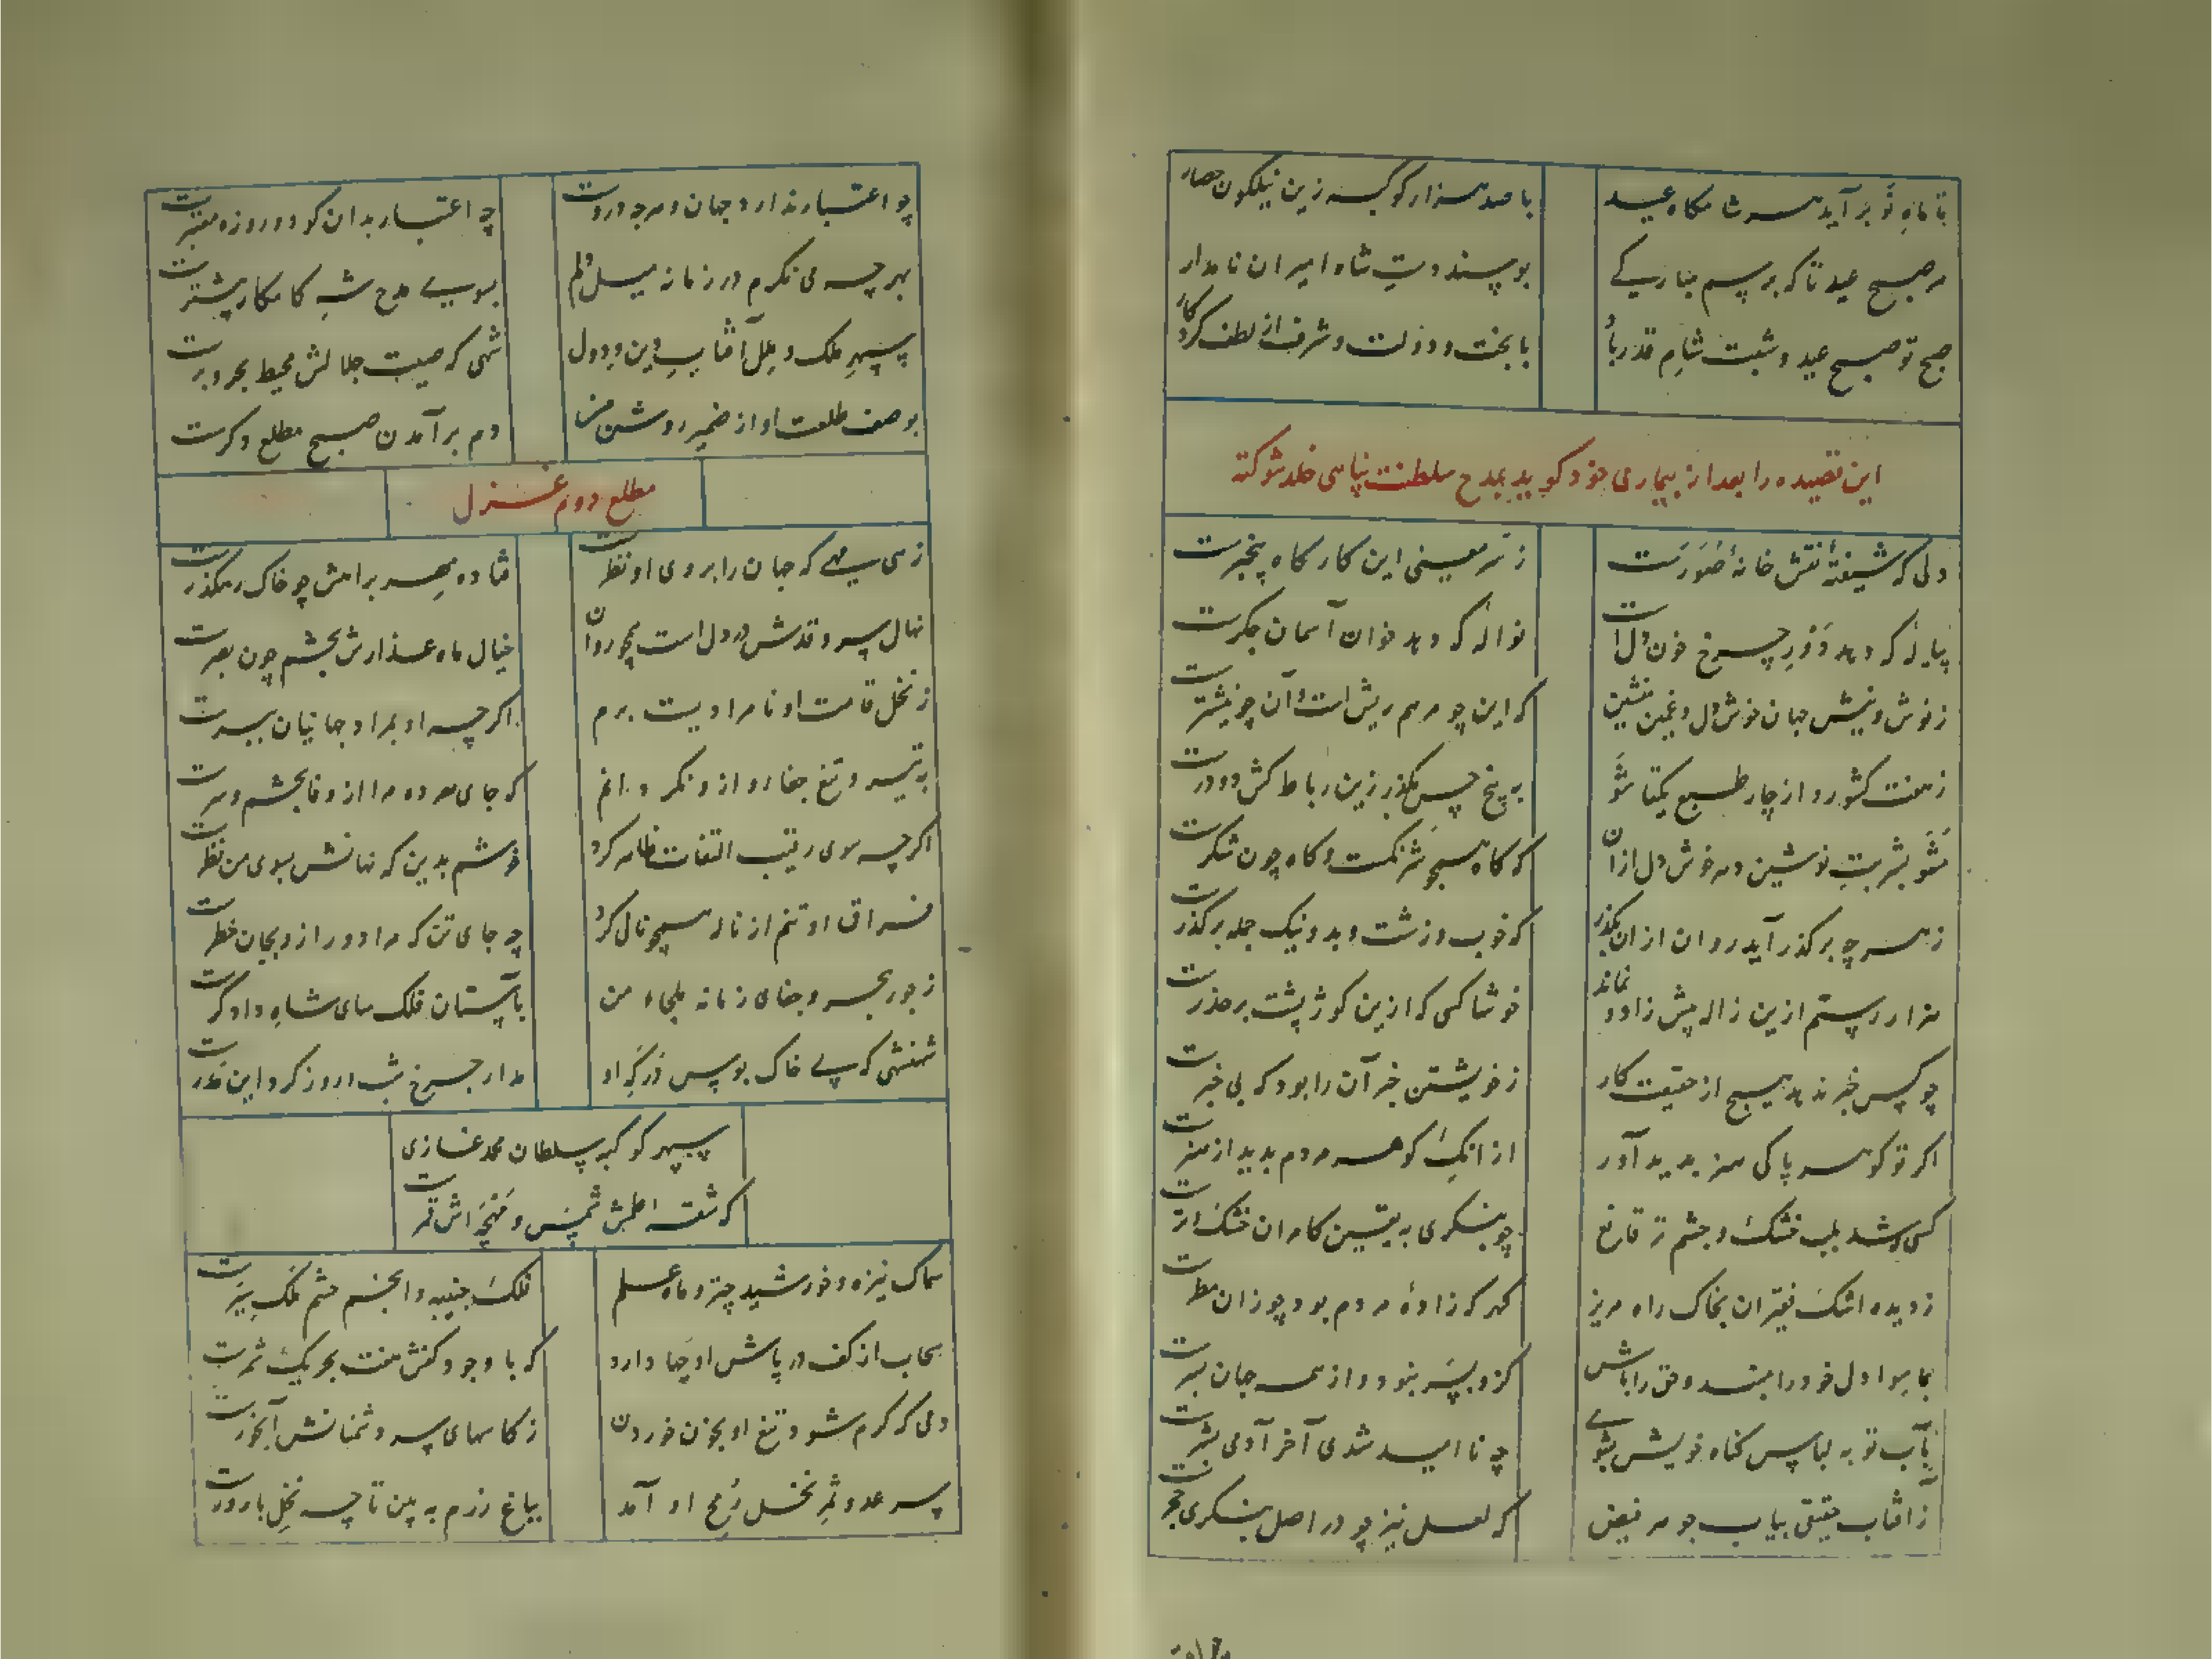 تا ماهِ نَو بر آید هر شامگاه عید
با صد هزار کوکبه زین نیلگون حصار
هر صبح عید تا که برسم مبارکے
بوسند دستِ شاه امیران نامدار
صبح تو صبح عید و شبت شامِ قدر باد
با بخت و دولت و شرف از لطف کردگار
این قصیده را بعد از بیماری خود گوید بمدح سلطنت پناهی خلد شوکته
دلی که شیفتهٔ نقش خانهٔ صُوَرست
ز سَرِ معنی این کارگاه بیخبرست
پیالهٔ که دهد دَوْرِ چرخ خون دل است
نوالهٔ که دهد خوان آسمان جگرست
ز نوش و نیش جهان خوش دل و غمین منشین
که این چو مرهم ریش است و آن چو نیشترست
ز هفت کشور و از چار طبع یکتا شَو
به پنج حس مگذر زین رباط کش دو درست
مَشَو بشربتِ نوشین دهر خوش دل از آن
که گاه همچو شرنگست و گاه چون شکرست
ز هر چه بر گذر آید روان از ان بگذر
که خوب و زشت و بد و نیک جمله بر گذرست
هزار رستم ازین زال پیش زاد و نماند
خوشا کسی که ازین کوژ پشت بر حذرست
چو کس خبر ندهد هیچ از حقیقت کار
ز خویشتن خبر آن را بود که بی خبرست
اگر تو گوهر پاکی هنر پدید آور
از انکِ گوهر مردم پدید از هنرست
کسی که شد بلب خشک و چشم تر قانع
چو بنگری به یقین کامران خشک و ترست
ز دیده اشک فقیران بخاک راه مریز
گهر که زادهٔ مردم بود چو زان مطرست
بما سوا دل خود را مبند و حق را باش
کزو بِسَر نبود و از همه جهان بسرست
بآب توبه لباس گناه خویش بشوے
چه نا امید شدی آخر آدمی بشرست
ز آفتاب حقیقی بیاب جوهر فیض
که لعل نیز چو در اصل بنگری حجرست
چو اعتبار ندارد جهان و هر چه دروست
چه اعتبار بدان کو دو روزه معتبرست
بهر چه می نگرم در زمانه میل دلم
بسوے مدح شهِ کامکار بیشترست
سپهرِ ملک و ملل آفتابِ دین و دول
شهی که صیت جلالش محیط بحر و برست
بوصف طلعت او از ضمیر روشن من
دم بر آمدن صبح مطلع دگرست
مطلع دوم غزل
زهی مهے که جهان را بروی او نظرست
فتاده مهر براهش چو خاک رهگذرست
نهال سرو قدش در دل است همچو روان
خیال ماه عذارش بچشم چون بصرست
ز نخل قامت او نامرادیست برم
اگر چه او بمراد جهانیان ببرست
به تیر و تیغ جفا رو ازو نگردانم
که جای هر دو مرا از وفا بچشم و سرست
اگر چه سوی رقیب التفات ظاهر کرد
خوشم بدین که نهانش بسوی من نظرست
فراق او تنم از ناله همچو نال کرد
چه جای تن که مرا دور ازو بجان خطرست
ز جور هجر و جفای زمانه ملجاء من
بآستان فلک سای شاهِ دادگرست
شهنشی که پے خاک بوس دَرگهِ او
مدار چرخ شب و روز گرد این مَدَرست
سپهر کوکبه سلطان محمد غازی
که شقه اطلس شمس و مَنجَه اش قمرست
سماک نیزه و خورشید چتر و ماه علم
فلکَ جنیبه و انجم حشم مَلَک سِیَرست
سحاب از کف در پاش او حیا دارد
که با وجود کفش هفت بحر یکَ شمرست
دمی که گرم شود تیغ او بخون خوردن
ز کاسهای سر دشمنانش آبخورست
سر عدو ثمرِ نخل رُمح او آمد
بباغ رزم به بین تا چه نخلِ بارورست